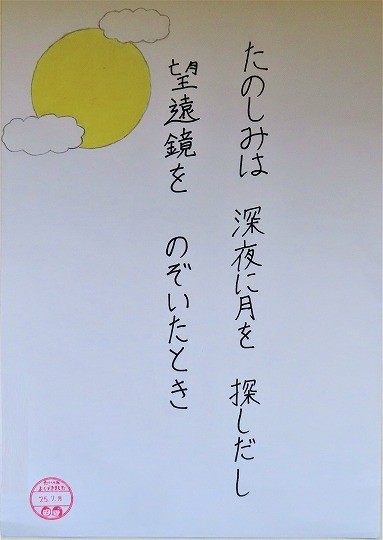 たのしみは　深夜に月を　探しだし
望遠鏡を　のぞいたとき
25.7.月